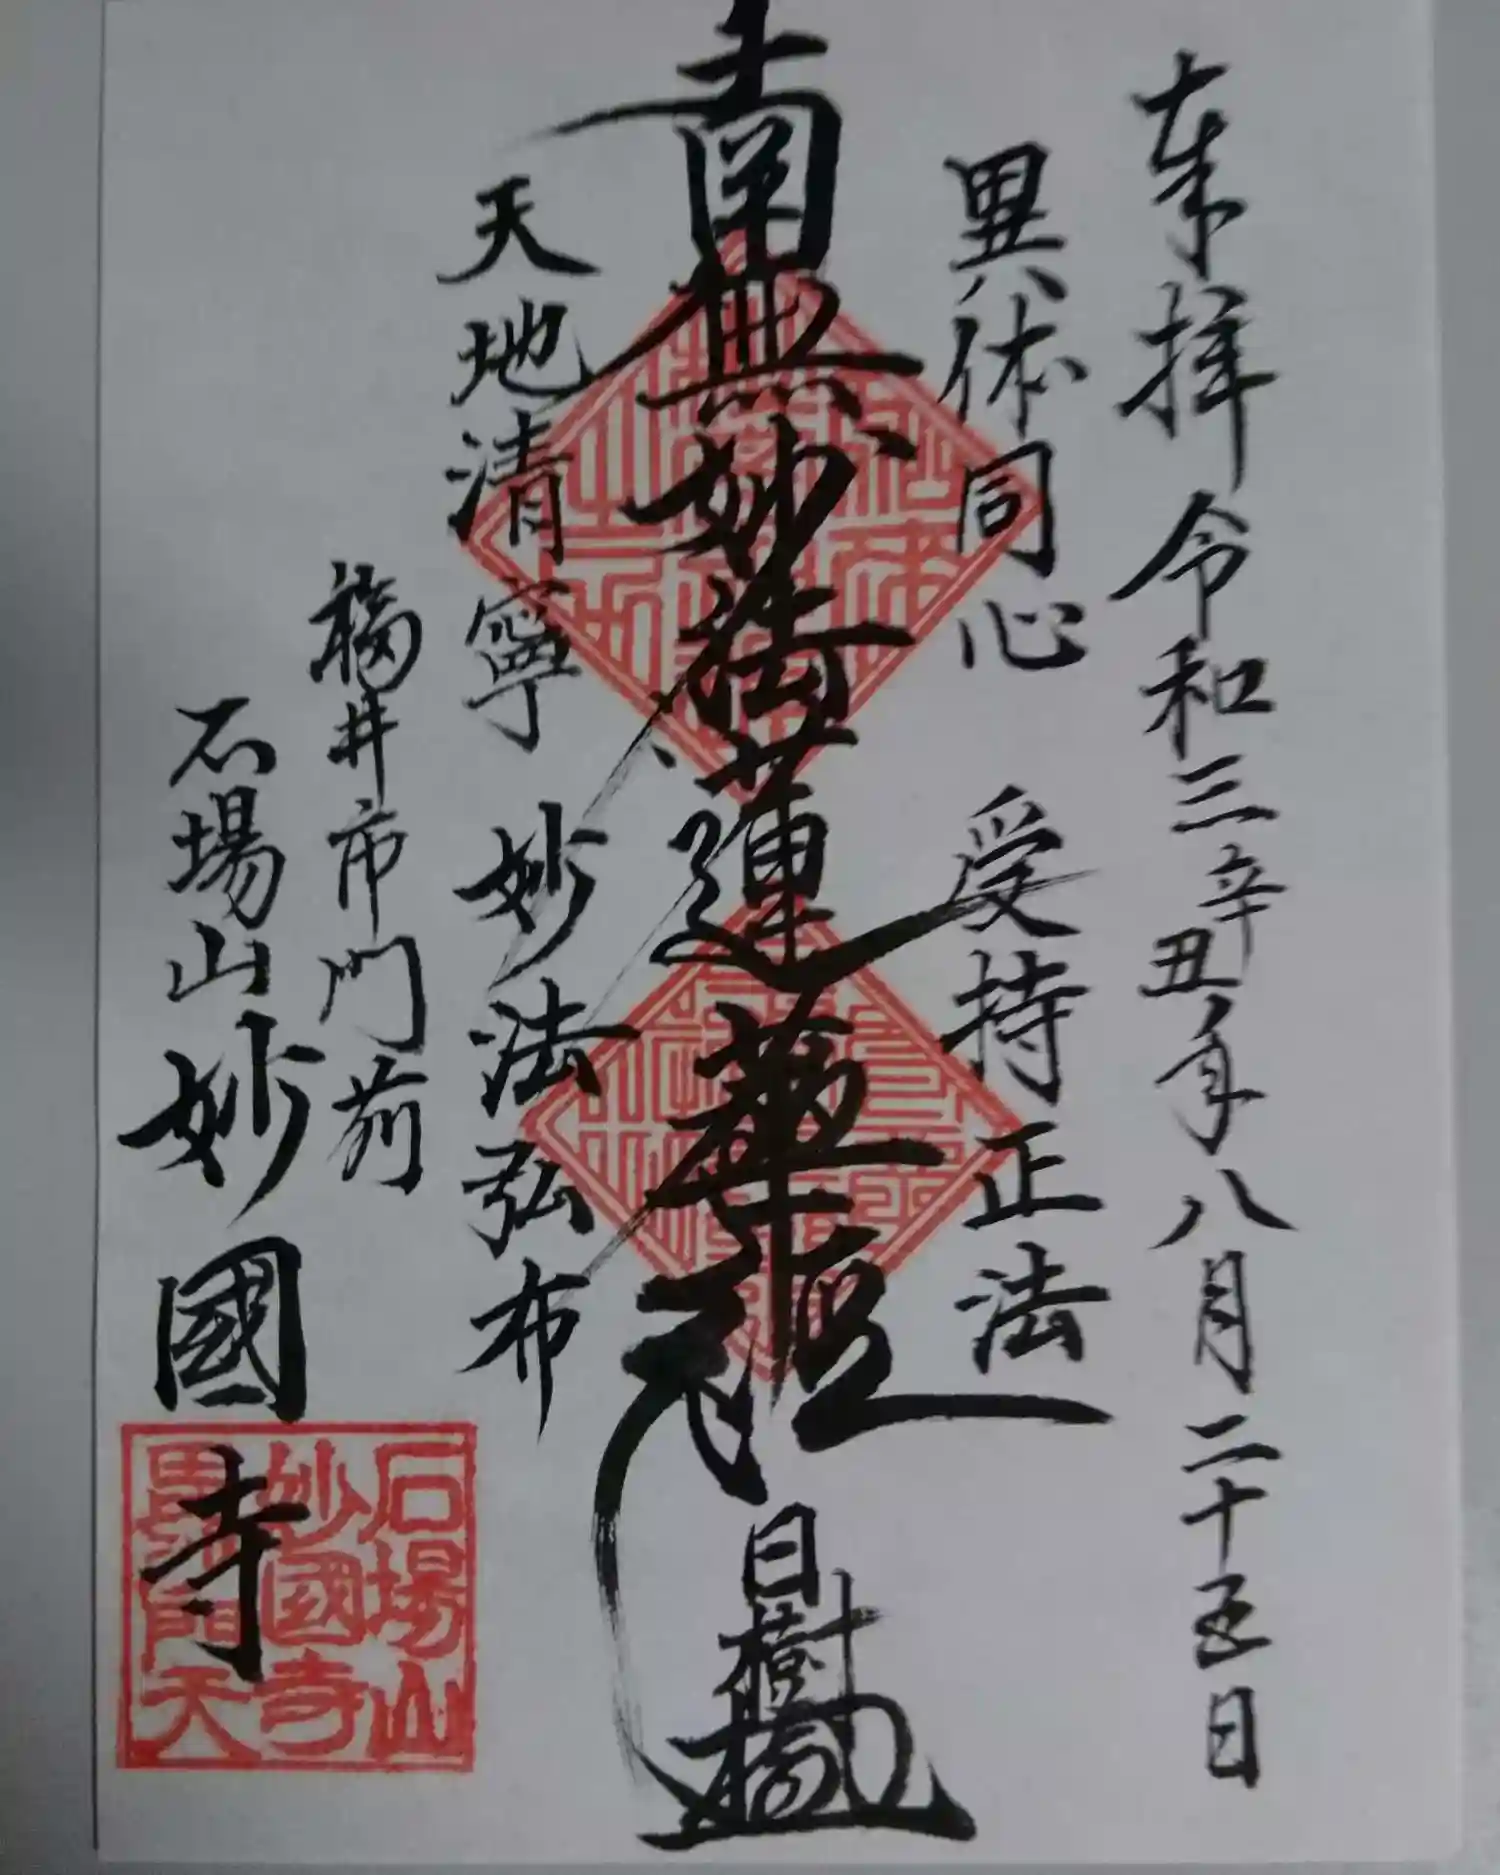 奉拝 令和三辛丑年八月二十五日
異体同心 受持正法
南無妙法蓮華経
日樹
天地清寧 妙法弘布
福井市門前
石場山妙國寺
石場山
妙國寺
毘沙門天